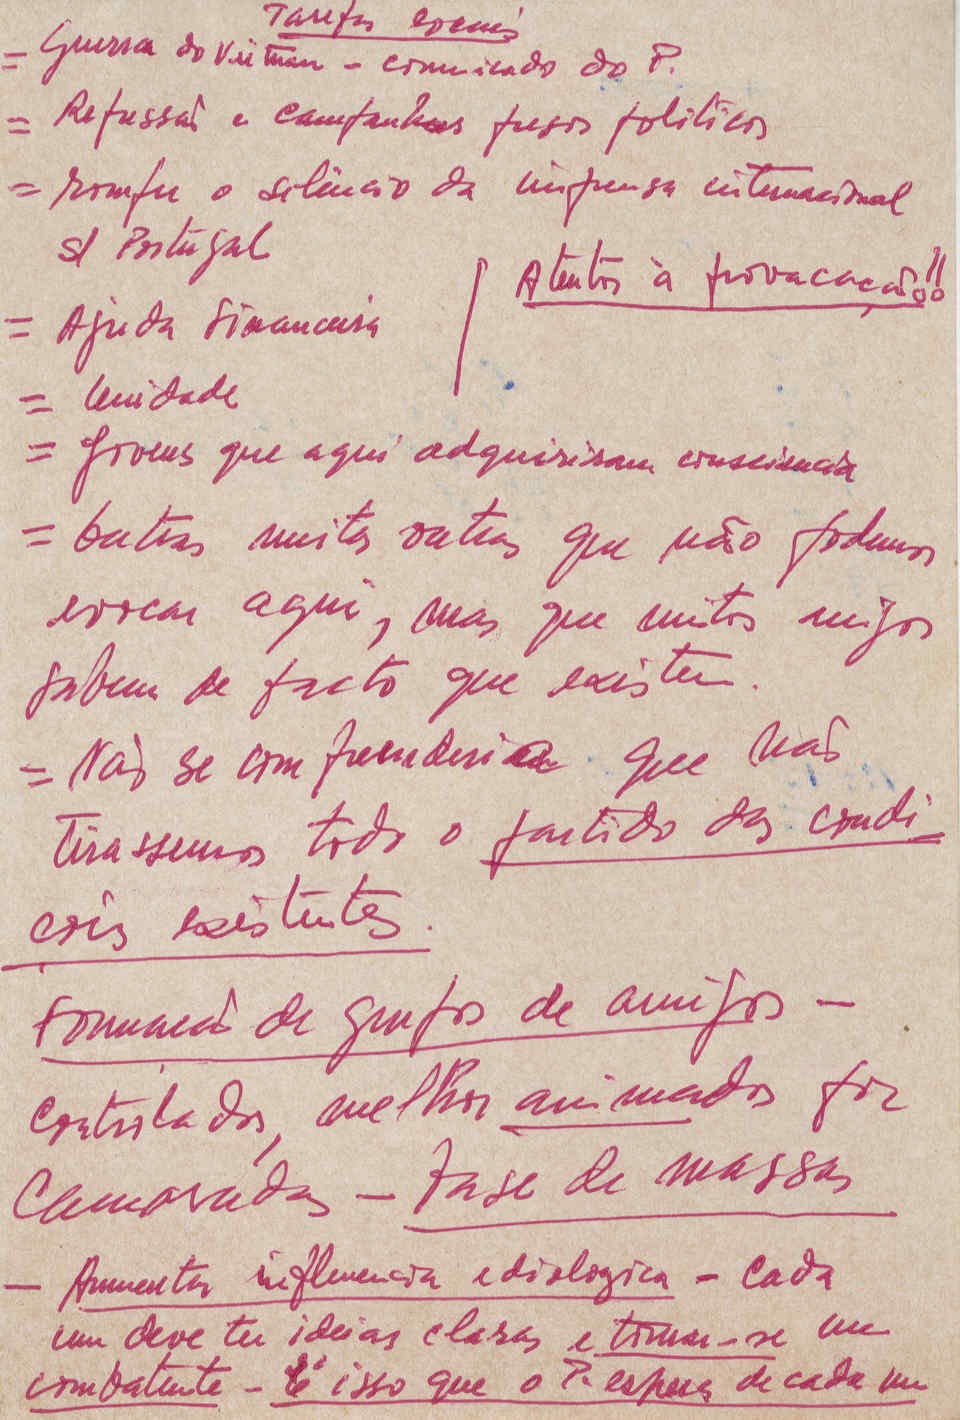 Tarefas
= Guerra do Vietnam - comunicado do P.
= Repressão e campanhas presos politicos
= romper o silêncio da imprensa internacional
s/ Portugal
Atentos à provacação!!
= Ajuda Financeira
= Unidade
= Jovens que aqui adquiriram consciencia
= Outras muitas outras que não podemos
evocar aqui, mas que muitos amigos
sabem de facto que existem.
= Não se compreenderia que não
tirassemos todo o partido das condi
cões existentes.
Formacão de grupos de amigos -
Controlados, melhor animados por
Camaradas - Fase de massas
- Aumentar influencia ediologica - Cada
um deve ter ideias claras e tornar-se um
combatente - É isso que o P. espera de cada um